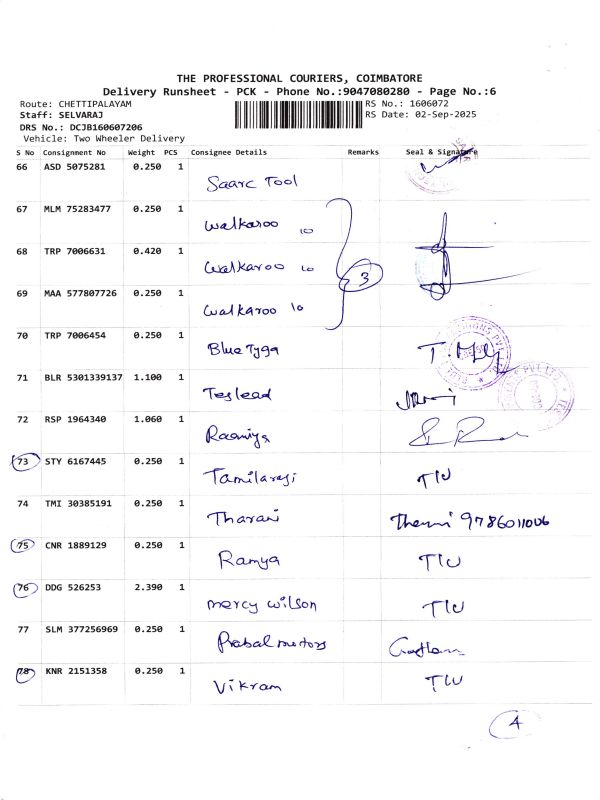 THE PROFESSIONAL COURIERS, COIMBATORE
Delivery Runsheet - PCK - Phone No.:9047080280 - Page No.:6
Route: CHETTIPALAYAM RS No.: 1606072
Staff: SELVARAJ RS Date: 02-Sep-2025
DRS No.: DCJB160607206
Vehicle: Two Wheeler Delivery
S No Consignment No Weight PCS Consignee Details Remarks Seal & Signature
66 ASD 5075281 0.250 1
Saarc Tool
67 MLM 75283477 0.250 1
Walkaroo 10
68 TRP 7006631 0.420 1
Walkaroo 10 3
69 MAA 577807726 0.250 1
Walkaroo 10
70 TRP 7006454 0.250 1
Blue Tyga
71 BLR 5301339137 1.100 1
Teslead
72 RSP 1964340 1.060 1
Raamiya
73 STY 6167445 0.250 1
Tamilarasi TLU
74 TMI 30385191 0.250 1
Tharani 9786011006
75 CNR 1889129 0.250 1
Ramya TLU
76 DDG 526253 2.390 1
mercy wilson TLU
77 SLM 377256969 0.250 1
Prabal motors
78 KNR 2151358 0.250 1
Vikram TLU
4